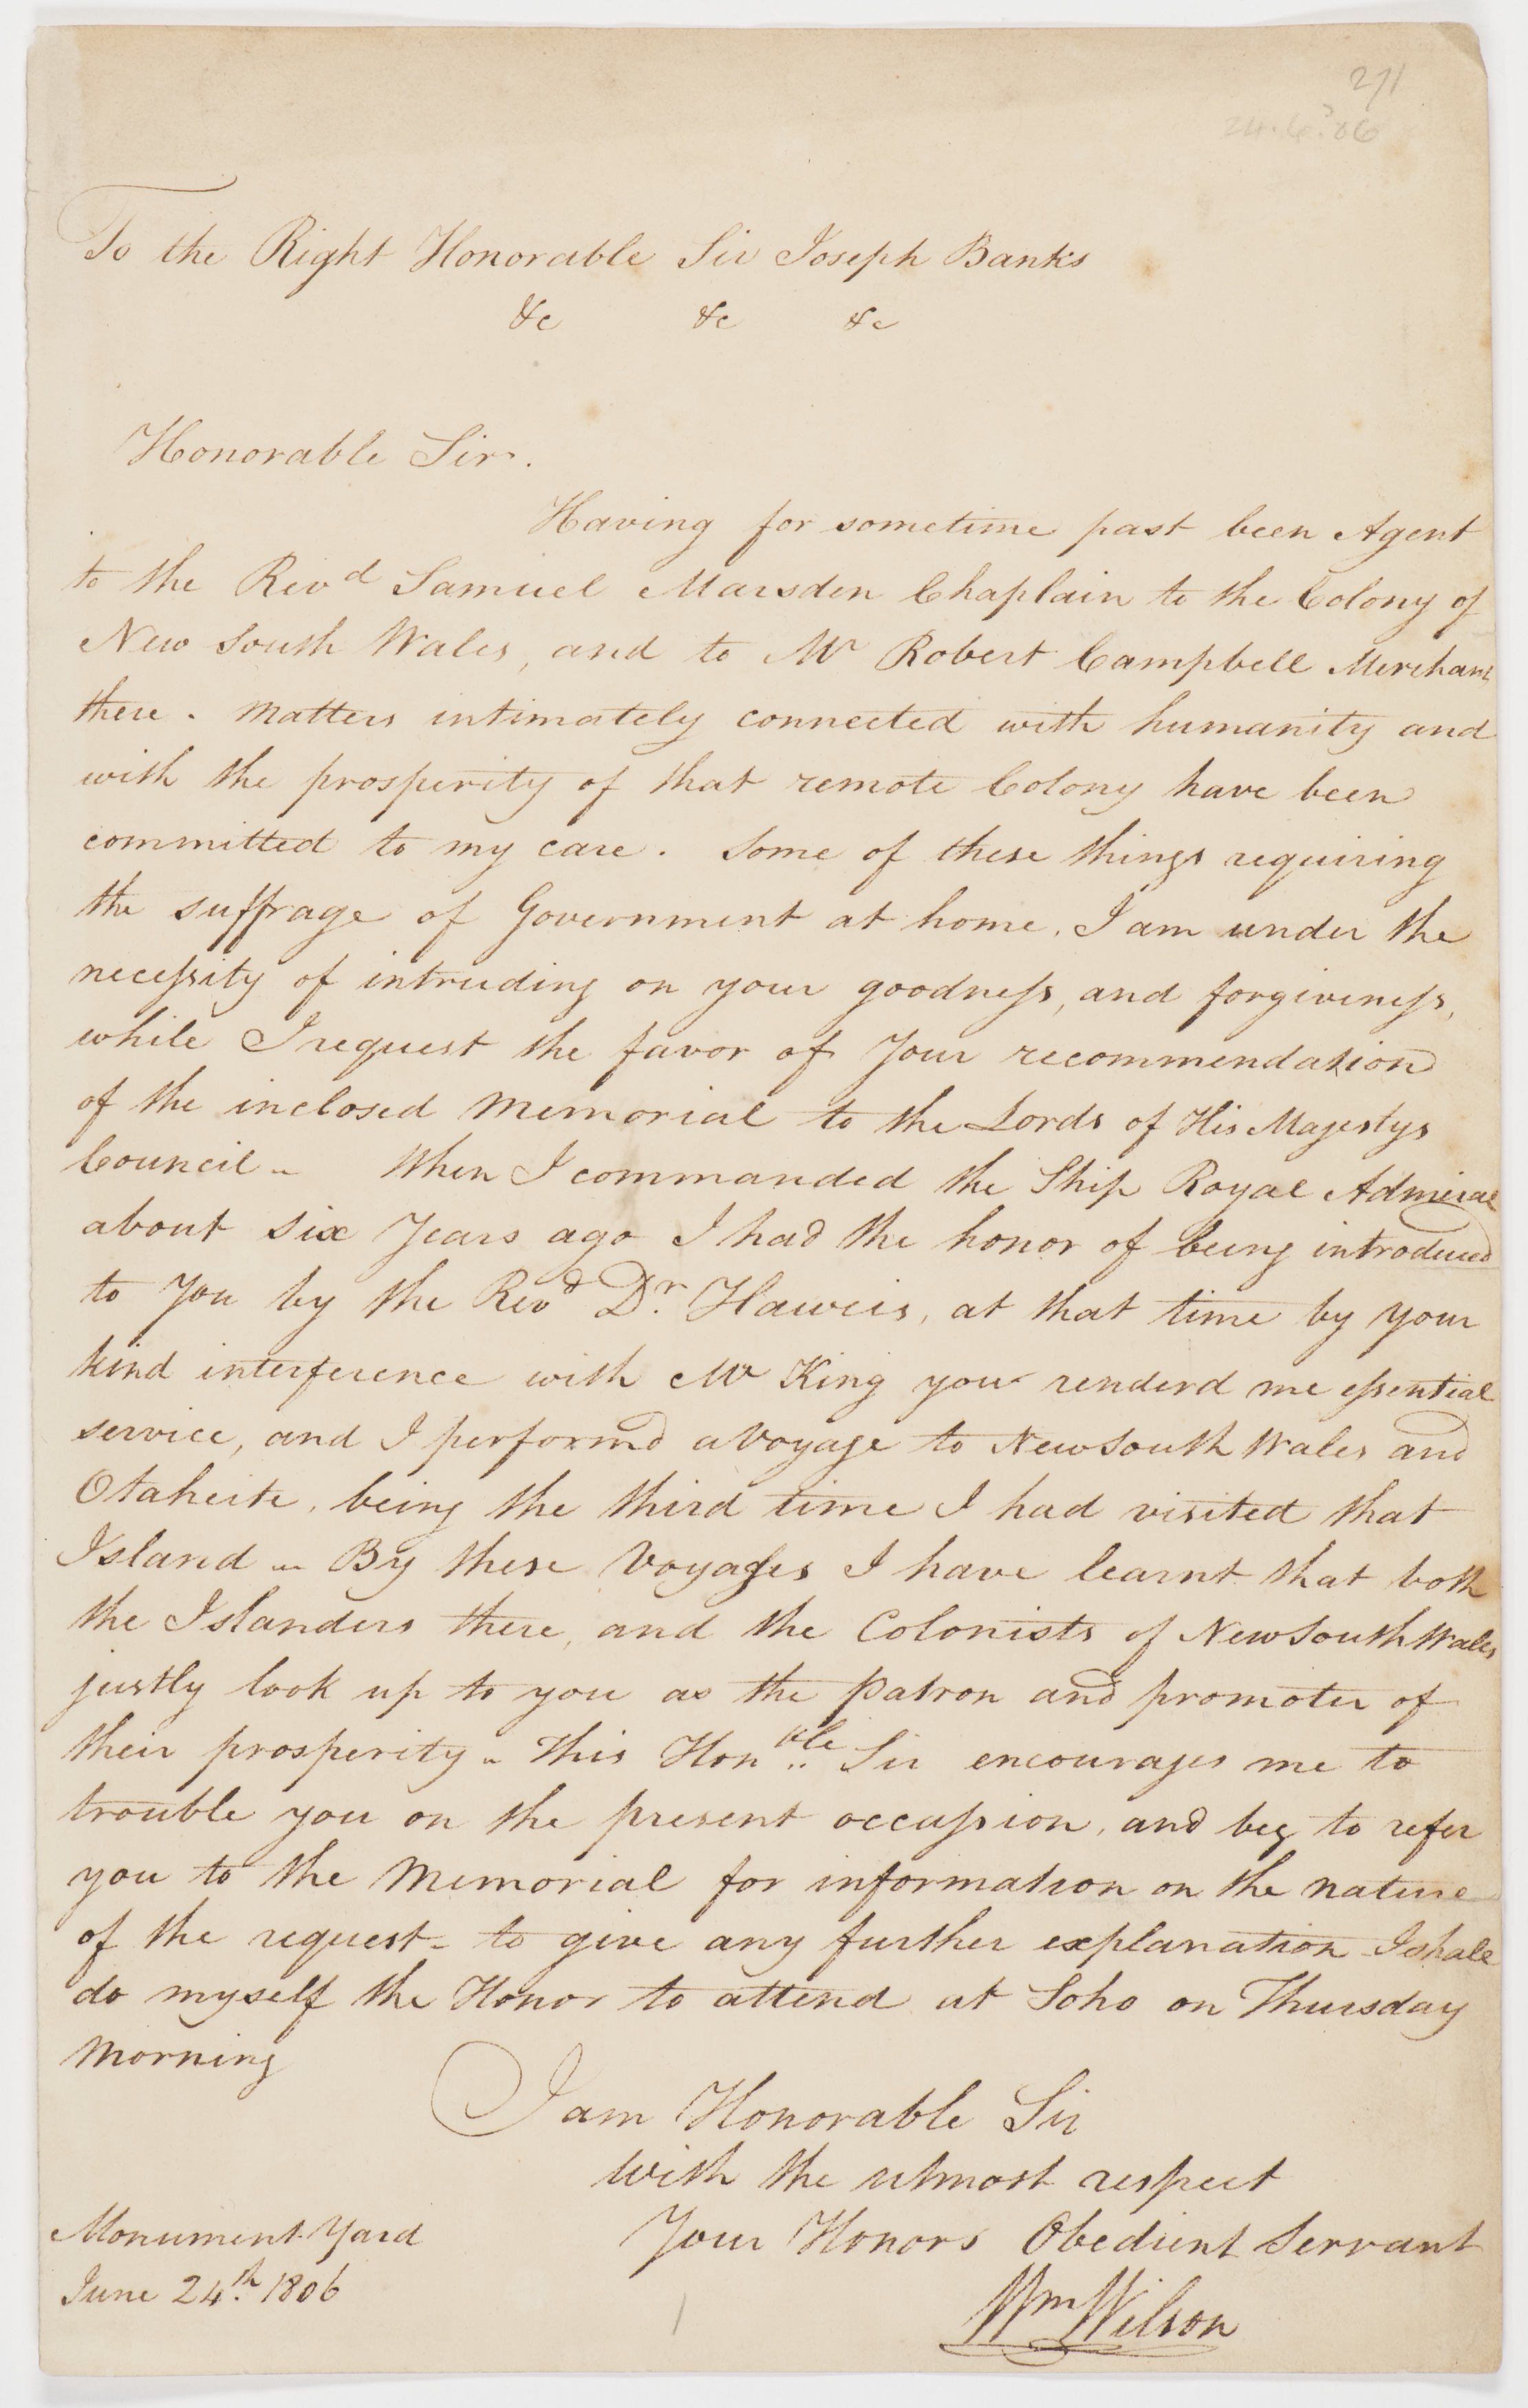 271
24.6.06
To the Right Honorable Sir Joseph Banks
&c &c &c
Honorable Sir.
Having for sometime past been Agent
to the Revd Samuel Marsden Chaplain to the Colony of
New South Wales, and to Mr Robert Campbell Merchant
there. Matters intimately connected with humanity and
with the prosperity of that remote Colony have been
committed to my care. Some of these things requiring
the suffrage of Government at home. I am under the
necessity of intruding on your goodness, and forgiveness,
while I request the favor of Your recommendation
of the inclosed Memorial to the Lords of His Majestys
Council - When I commanded the Ship Royal Admiral
about six Years ago I had the honor of being introduced
to You by the Revd Dr. Haweis, at that time by your
kind interference with Mr King you renderd me essential
service, and I performd a Voyage to New South Wales and
Otaheite, being the third time I had visited that
Island - By these Voyages I have learnt that both
the Islanders there, and the Colonists of New South Wales
justly look up to you as the Patron and promoter of
their prosperity - This Honble Sir encourages me to
trouble you on the present occassion, and beg to refer
you to the Memorial for information on the nature
of the request - to give any further explanation I shall
do myself the Honor to attend at Soho on Thursday
Morning
I am Honorable Sir
With the utmost respect
Your Honors Obedient Servant
Wm Wilson
Monument Yard
June 24th. 1806